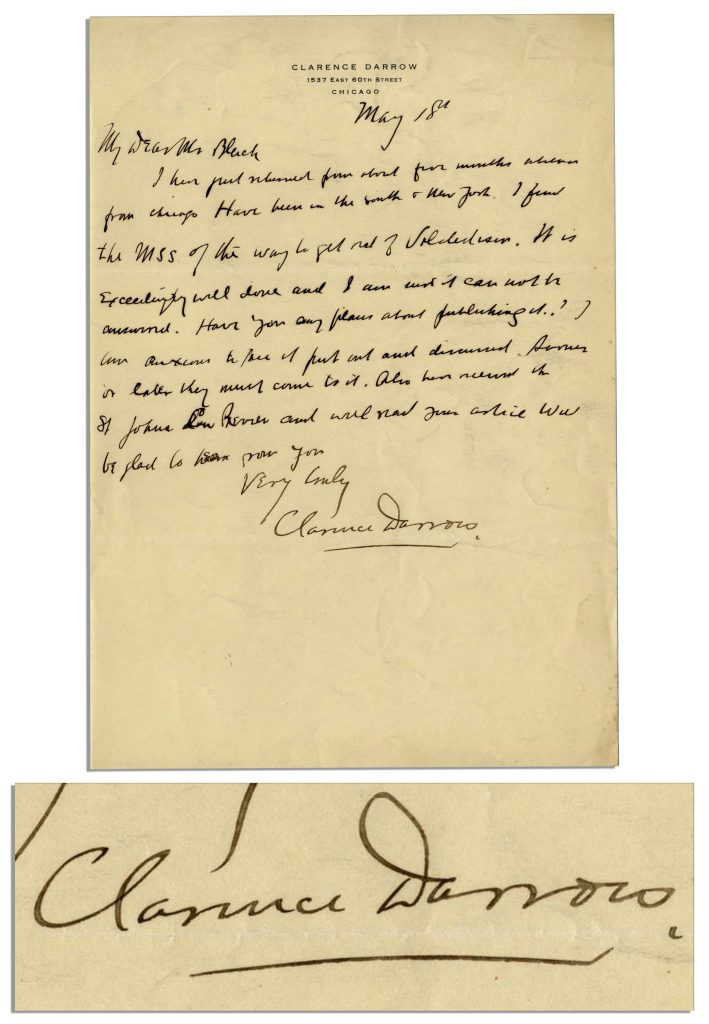 CLARENCE DARROW
1537 EAST 60TH STREET
CHICAGO
May 18th
My Dear Mr Black
I have just returned from about five months absence
from Chicago Have been in the south & New York. I find
the MSS of the way to get rid of. It is
Exceedingly well done and I am sure it can not be
answered. Have you any plans about publishing it..? I
am anxious to see it put out and discussed. Sooner
or later they must come to it. Also have received the
St Johns Law Review and will read your article Will
be glad to hear from you
Very truly
Clarence Darrow.
Clarence Darrow.